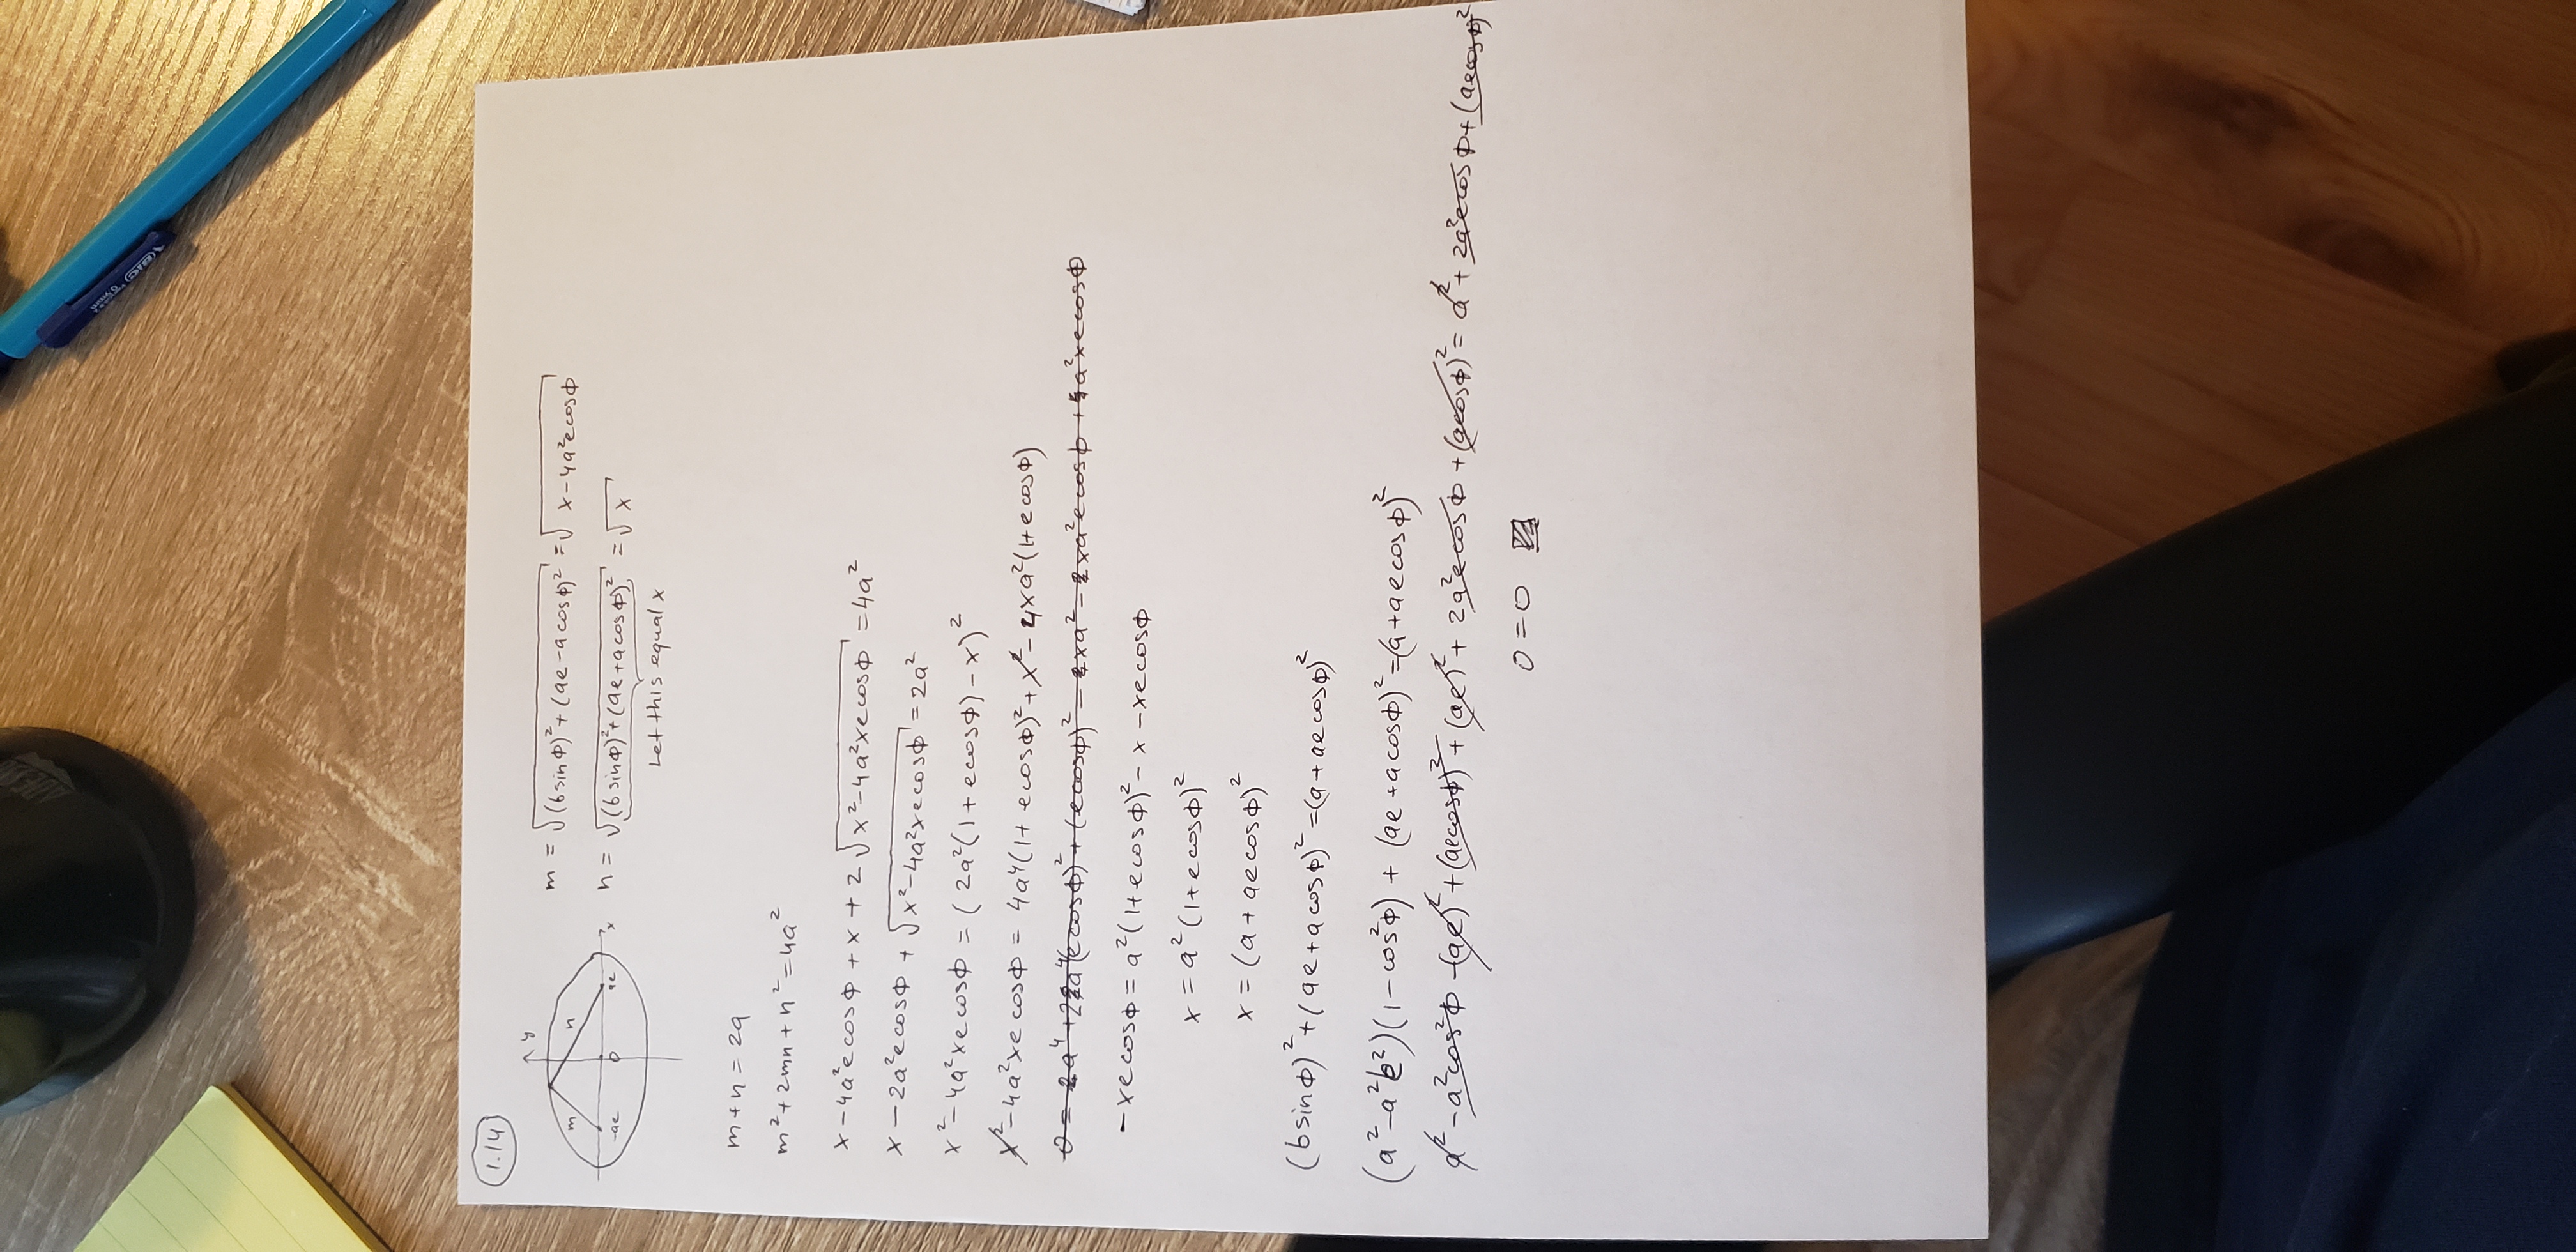 1.14
y
m
n
-ae
0
ae
x
m = √((b sinφ)² + (ae - a cosφ)²) = √(x - 4a²e cosφ)
n = √((b sinφ)² + (ae + a cosφ)²) = √x
Let this equal x
m + n = 2a
m² + 2mn + n² = 4a²
x - 4a²e cosφ + x + 2√(x² - 4a²xe cosφ) = 4a²
x - 2a²e cosφ + √(x² - 4a²xe cosφ) = 2a²
x² - 4a²xe cosφ = (2a²(1 + e cosφ) - x)²
x² - 4a²xe cosφ = 4a⁴(1 + e cosφ)² + x² - 4xa²(1 + e cosφ)
-xe cosφ = a²(1 + e cosφ)² - x - xe cosφ
x = a²(1 + e cosφ)²
x = (a + ae cosφ)²
(b sinφ)² + (ae + a cosφ)² = (a + ae cosφ)²
(a² - a²e²)(1 - cos²φ) + (ae + a cosφ)² = (a + ae cosφ)²
a² - a²cos²φ - (ae)² + (ae cosφ)² + (ae)² + 2a²e cosφ + (a cosφ)² = a² + 2a²e cosφ + (ae cosφ)²
0 = 0